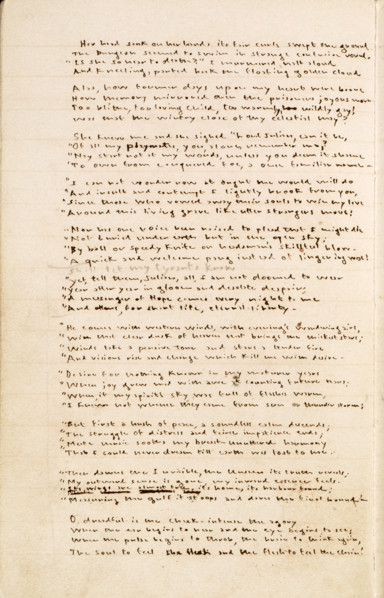 Her head sank on her hands, its fair curls swept the ground
The Dungeon seemed to swim in strange confusion round—
"Is she so near to death?" I murmured, half aloud
And kneeling, parted back the floating golden cloud
Alas, how former days upon my heart were borne
How memory mirrored then the prisoner's joyous morn—
Too blithe, too loving Child, too warmly, wildly gay!
Was that the wintry close of thy celestial May?
She knew me and she sighed "Lord Julian, can it be,
"Of all my playmates, you, alone, remember me?
"Nay start not at my words, unless you deem it shame
"To own from conquered foe, a once familiar name—
"I can not wonder now at ought the world will do
"And insult and contempt I lightly brook from you,
"Since those who vowed away their souls to win my love
"Around this living grave like utter strangers move!
"Nor has one voice been raised to plead that I might die
"Not buried under earth but in the open sky;
"By ball or speedy knife or headsman's skillful blow—
"A quick and welcome pang instead of lingering woe!
let my tyrants know
"Yet tell them, Julian, all, I am not doomed to wear
"Year after year in gloom and desolate despair;
"A messenger of Hope comes every night to me
"And offers, for short life, eternal liberty—
"He comes with western winds, with evening's wandering airs,
"With that clear dusk of heaven that brings the thickest stars;
"Winds take a pensive tone and stars a tender fire
"And visions rise and change which kill me with desire—
"Desire for nothing known in my maturer years
"When joy grew mad with awe at counting future tears;
"When, if my spirit's sky was full of flashes warm,
"I knew not whence they came from sun or thunder storm;
"But first a hush of peace, a soundless calm descends;
"The struggle of distress and fierce impatience ends;
"Mute music soothes my breast unuttered harmony
That I could never dream till earth was lost to me.
"Then dawns the Invisible, the Unseen its truth reveals;
"My outward sense is gone, my inward essence feels—
"Its wings are almost free, its home, its harbour found;
"Measuring the gulf it stoops and dares the final bound—
O, dreadful is the check—intense the agony
When the ear begins to hear and the eye begins to see;
When the pulse begins to throb, the brain to think again,
The soul to feel the flesh and the flesh to feel the chain!